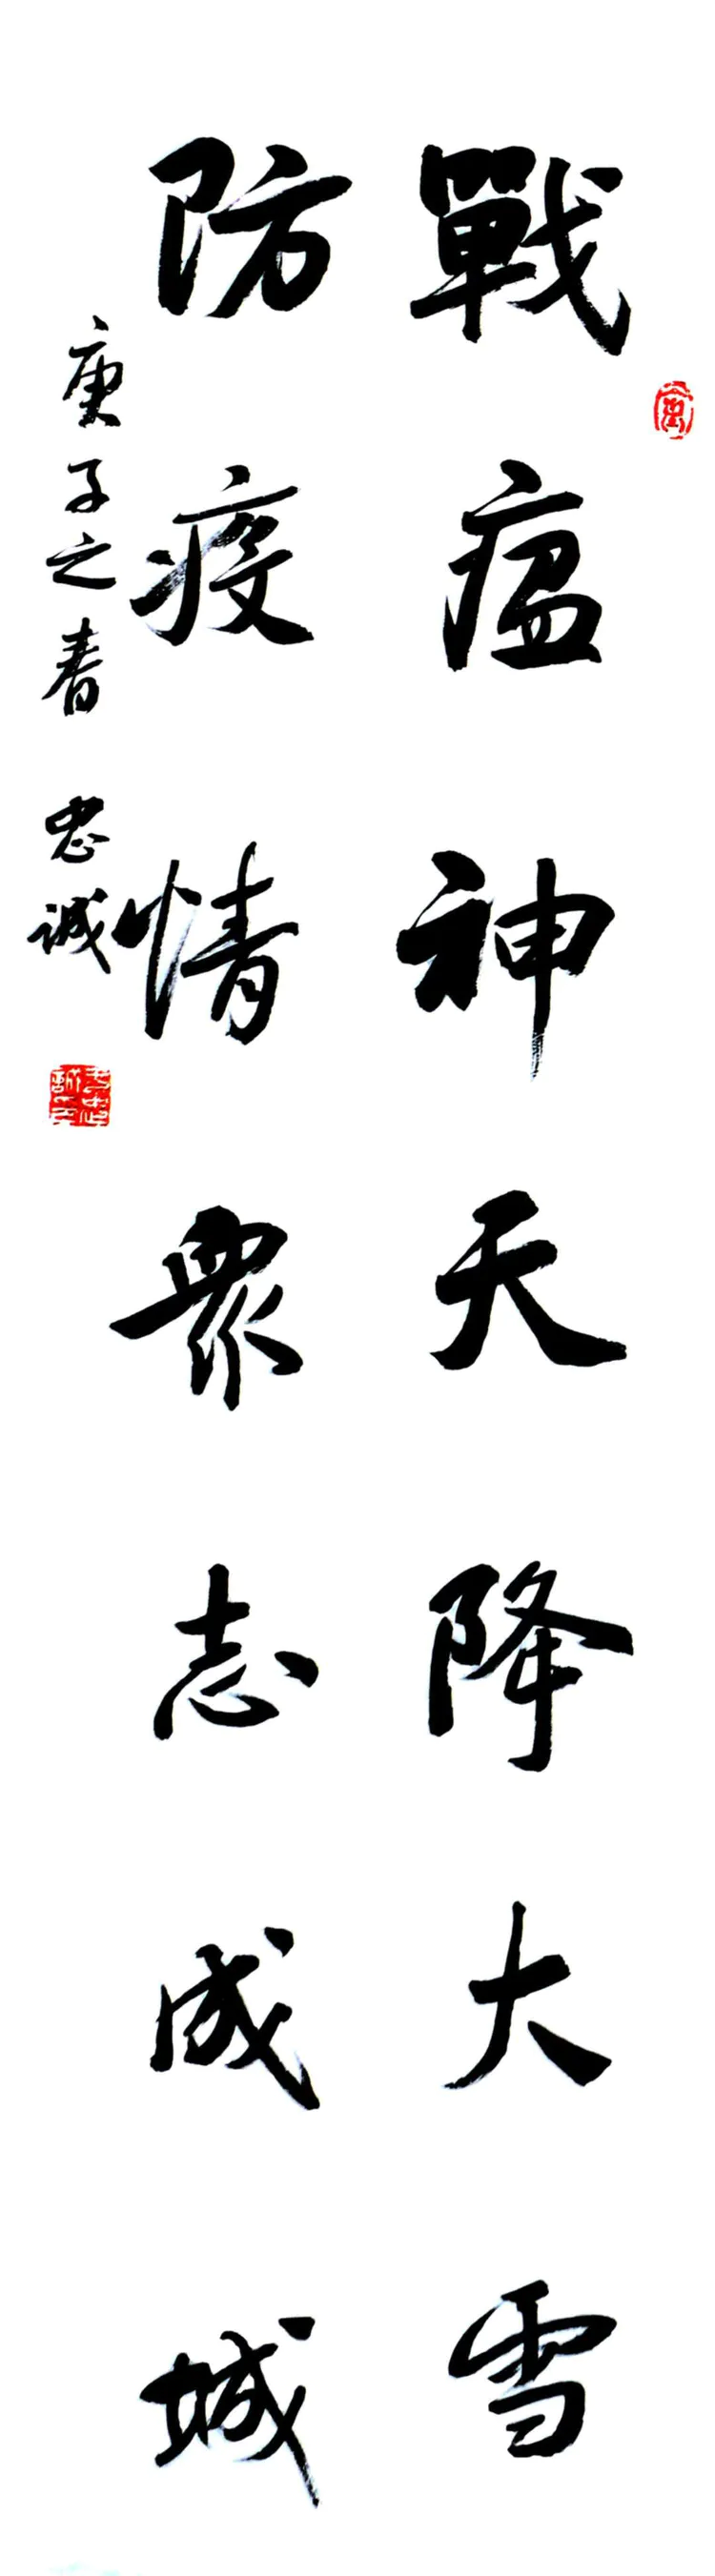 戰瘟神天降大雪
防疫情衆志成城
庚子之春 忠诚